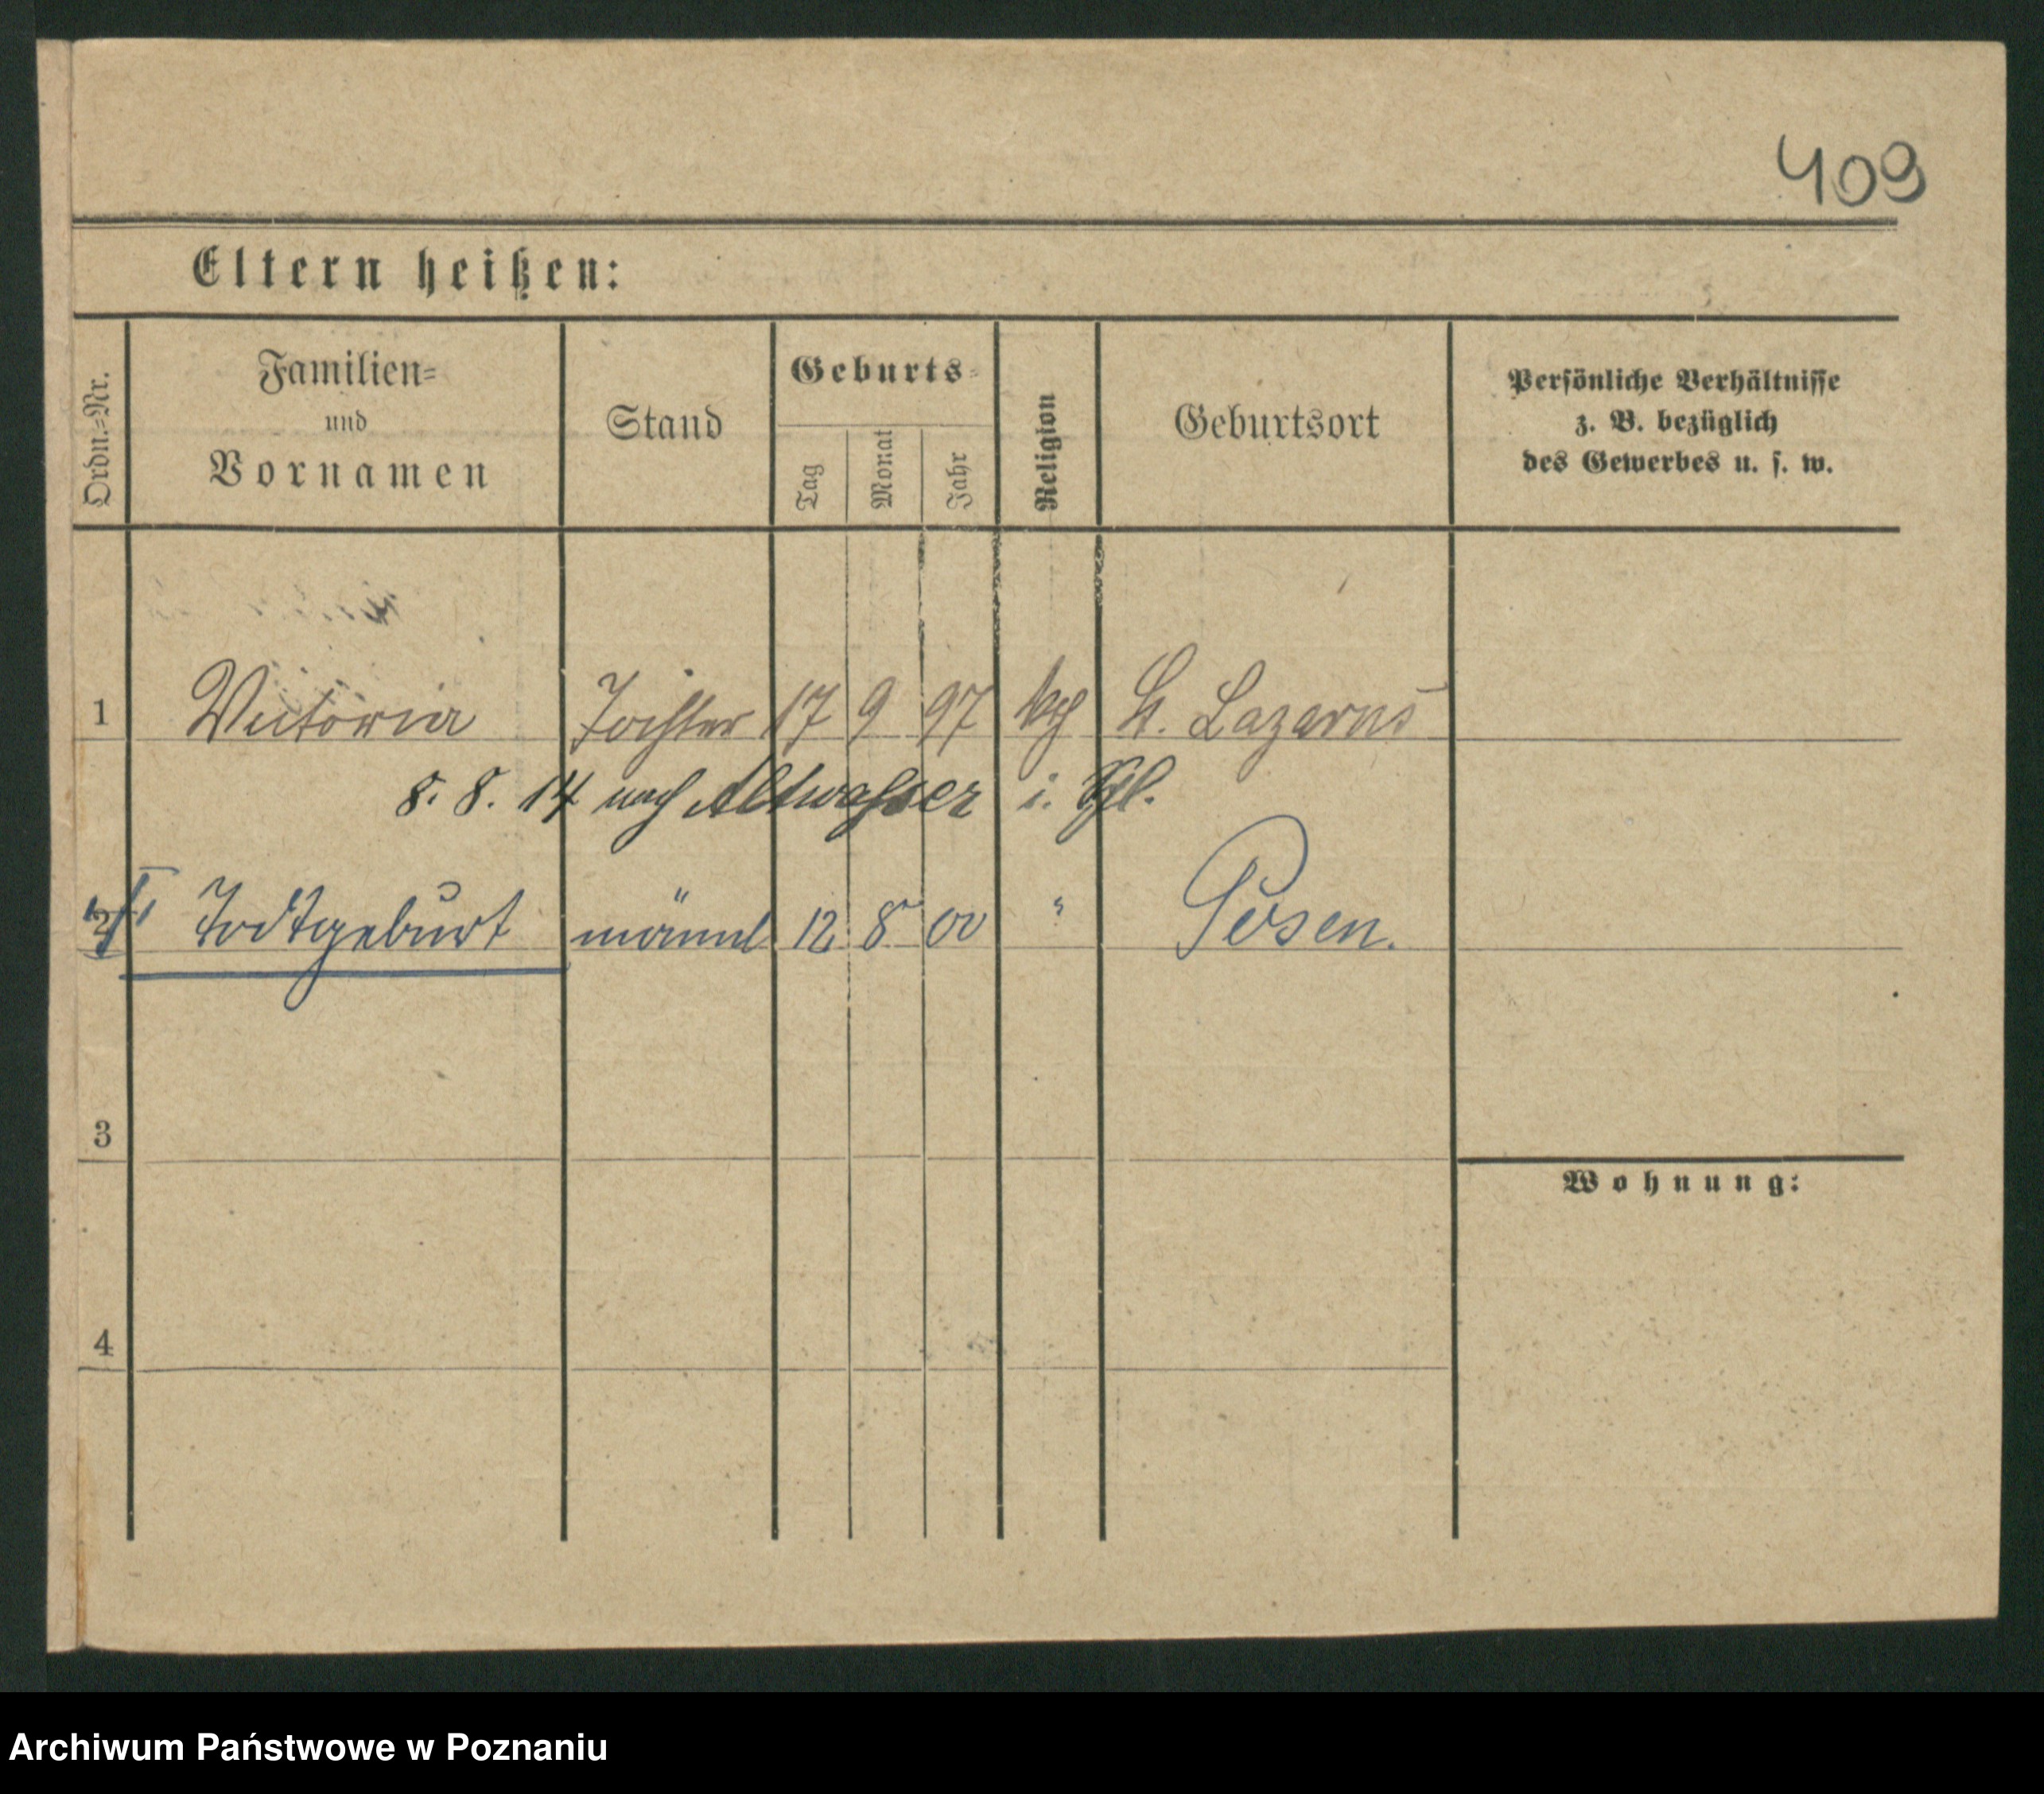 409
Eltern heißen:
Ordn.-Nr.
Familien-
und
Vornamen
Stand
Geburts-
Tag
Monat
Jahr
Religion
Geburtsort
Persönliche Verhältnisse
z. B. bezüglich
des Gewerbes u. s. w.
1 Victoria Tochter 17 9 97 kth St. Lazarus
8. 8. 14 nach Altwasser i. Schl.
2 Todtgeburt männl 12 8 00 " Posen.
3
Wohnung:
4
Archiwum Państwowe w Poznaniu